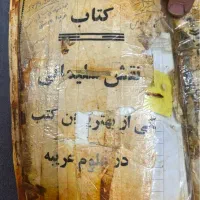 کتاب
نقش سلیمانی
یکی از بهترین کتب
در علوم غریبه